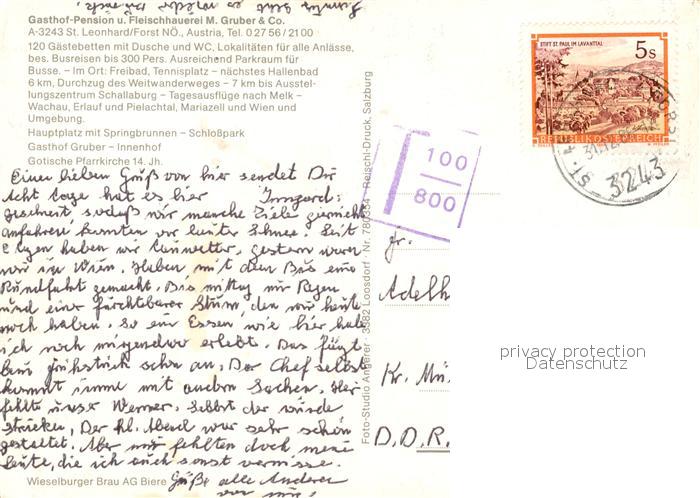 Gasthof-Pension u. Fleischhauerei M. Gruber & Co.
A-3243 St. Leonhard/Forst NÖ., Austria, Tel. 0 27 56 / 21 00
120 Gästebetten mit Dusche und WC, Lokalitäten für alle Anlässe,
bes. Busreisen bis 300 Pers. Ausreichend Parkraum für
Busse. – Im Ort: Freibad, Tennisplatz – nächstes Hallenbad
6 km, Durchzug des Weitwanderweges – 7 km bis Ausstel-
lungszentrum Schallaburg – Tagesausflüge nach Melk –
Wachau, Erlauf und Pielachtal, Mariazell und Wien und
Umgebung.
Hauptplatz mit Springbrunnen – Schloßpark
Gasthof Gruber – Innenhof
Gotische Pfarrkirche 14. Jh.
Einen lieben Gruß von hier sendet Dir
Acht Tage hat es hier Irmgard.
geschneit, sodaß wir manche Ziele garnicht
anfahren konnten vor lauter Schnee. Seit
2 Tagen haben wir Tauwetter, gestern waren
wir in Wien. Haben mit dem Bus eine
Rundfahrt gemacht. Bis mittag nur Regen
und einen fürchtbaren Sturm, den wir heute
noch haben. So ein Essen wie hier habe
ich noch nirgendwo erlebt. Das fängt
beim Frühstück schon an. Der Chef selbst
kommt immer mit andern Sachen. Hier
fehlte unser Werner. Selbst der würde
streicken. Der hl. Abend war sehr schön
gestaltet. Aber mir fehlten doch meine
Leute, die ich auch sonst vermisse.
Grüße alle Anderen
von mir!
Wieselburger Brau AG Biere
Foto-Studio Angerer · 3382 Loosdorf · Nr. 780354 · Reischl-Druck, Salzburg
100
800
STIFT ST. PAUL IM LAVANTTAL
5s
REPUBLIK ÖSTERREICH
3243
Fr.
Adelh
Kr. Mü
D.D.R.
privacy protection
Datenschutz